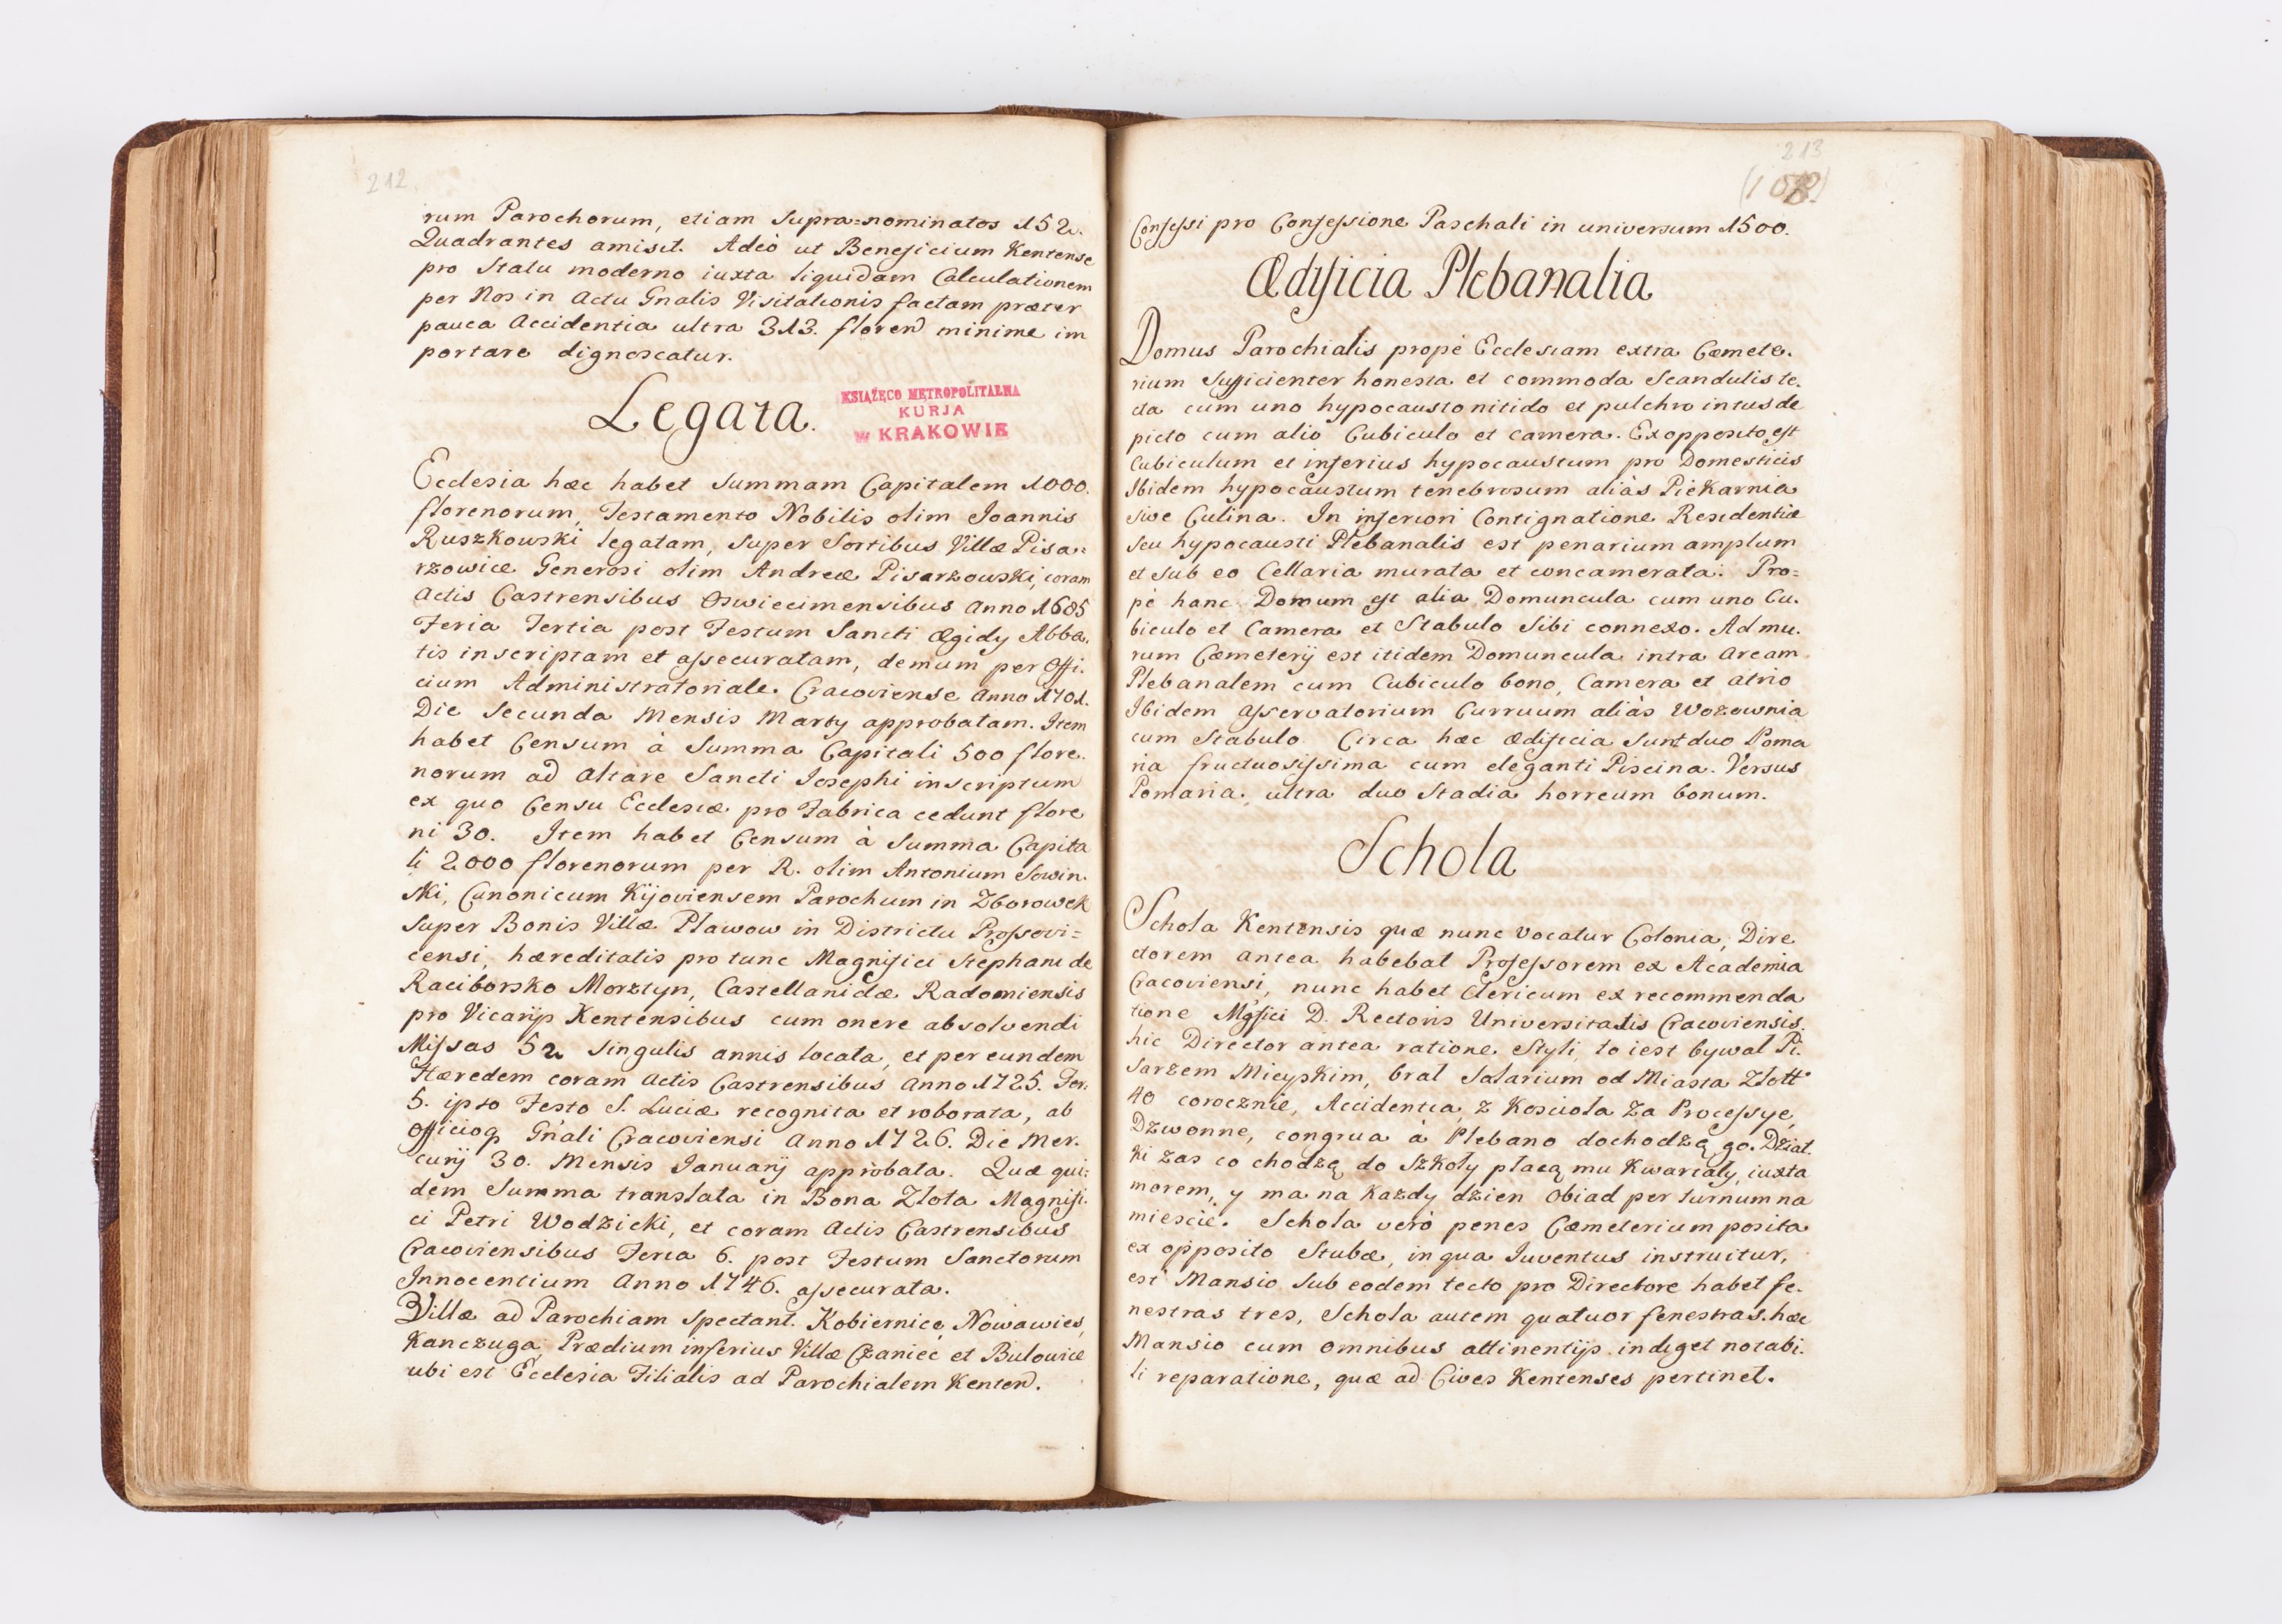 212.
rum Parochorum, etiam supra=nominatos 152.
Quadrantes amisit. Adeò ut Beneficium Kentense
pro Statu moderno iuxta liquidam Calculationem
per Nos in Actu Gnalis Visitationis factam præter
pauca Accidentia ultra 313. floren minime im
portare dignoscatur.
Legata.
KSIĄŻĘCO METROPOLITALNA
KURJA
w KRAKOWIE
Ecclesia hæc habet Summam Capitalem 1000.
florenorum Testamento Nobilis olim Joannis
Ruszkowski legatam, super Sortibus Villæ Pisa=
rzowice Generosi olim Andreæ Pisarzowski, coram
Actis Castrensibus Oswiecimensibus Anno 1685
Feria Tertia post Festum Sancti Ægidy Abba.
tis inscriptam et assecuratam, demum per Offi.
cium Administratoriale Cracoviense Anno 1701.
Die Secunda Mensis Marty approbatam. Item
habet Censum à Summa Capitali 500 flore.
norum ad Altare Sancti Josephi inscriptum
ex quo Censu Ecclesiæ pro Fabrica cedunt flore
ni 30. Item habet Censum à Summa Capita
li 2000 florenorum per R. olim Antonium Sowin.
ski, Canonicum Kijoviensem Parochum in Zborowek
super Bonis Villæ Plawow in Districtu Prossovi=
censi, hæreditatis pro tunc Magnifici Stephani de
Raciborsko Morztyn, Castellanidæ Radomiensis
pro Vicarijs Kentensibus cum onere absolvendi
Missas 52 singulis annis locata, et per eundem
Hæredem coram Actis Castrensibus Anno 1725. Fer.
5. ipso Festo S. Luciæ recognita et roborata, ab
Officioq Gnali Cracoviensi Anno 1726. Die Mer.
curij 30. Mensis Januarij approbata. Quæ qui=
dem Summa translata in Bona Zlota Magnifi.
ci Petri Wodzicki, et coram Actis Castrensibus
Cracoviensibus Feria 6. post Festum Sanctorum
Innocentium Anno 1746. assecurata.
Villæ ad Parochiam spectant. Kobiernice, Nowawies,
Kanczuga, Prædium inferius Villæ Czaniec et Bulowice
ubi est Ecclesia Filialis ad Parochialem Kenten.
213
Confessi pro Confessione Paschali in universum 1500.
Ædificia Plebanalia
Domus Parochialis propè Ecclesiam extra Cæmete.
rium sufficienter honesta et commoda Scandulis te.
cta cum uno hypocausto nitido et pulchro intus de
picto cum alio Cubiculo et camera. Ex opposito est
Cubiculum et inferius hypocaustum pro Domesticis
Ibidem hypocaustum tenebrosum aliàs Piekarnia
sive Culina. In inferiori Contignatione Residentiæ
seu hypocausti Plebanalis est penarium amplum
et sub eo Cellaria murata et concamerata. Pro=
pè hanc Domum est alia Domuncula cum uno Cu.
biculo et Camera et Stabulo sibi connexo. Ad mu.
rum Cæmeterij est itidem Domuncula intra Aream
Plebanalem cum Cubiculo bono, Camera et atrio
Ibidem asservatorium Curruum aliàs Wozownia
cum Stabulo. Circa hæc ædificia sunt duo Poma
ria fructuosissima cum eleganti Piscina. Versus
Pomaria ultra duo Stadia horreum bonum.
Schola
Schola Kentensis quæ nunc vocatur Colonia, Dire
ctorem antea habebat Professorem ex Academia
Cracoviensi, nunc habet Clericum ex recommenda
tione Mgfici D. Rectoris Universitatis Cracoviensis.
hic Director antea ratione Styli, to iest bywal Pi.
sarzem Mieyskim, bral Salarium od Miasta Zlott
40 corocznie, Accidentia z Kosciola za Processye,
Dzwonne, congrua à Plebano dochodzą go. Dziat.
ki zas co chodzą do Szkoly placą mu Kwartaly, iuxta
morem, y ma na Kazdy dzien Obiad per turnum na
miescie. Schola verò penes Cæmeterium posita
ex opposito Stubæ, in qua Juventus instruitur,
est Mansio sub eodem tecto pro Directore habet fe.
nestras tres, Schola autem quatuor fenestras. hæc
Mansio cum omnibus attinentijs indiget notabi.
li reparatione, quæ ad Cives Kentenses pertinet.